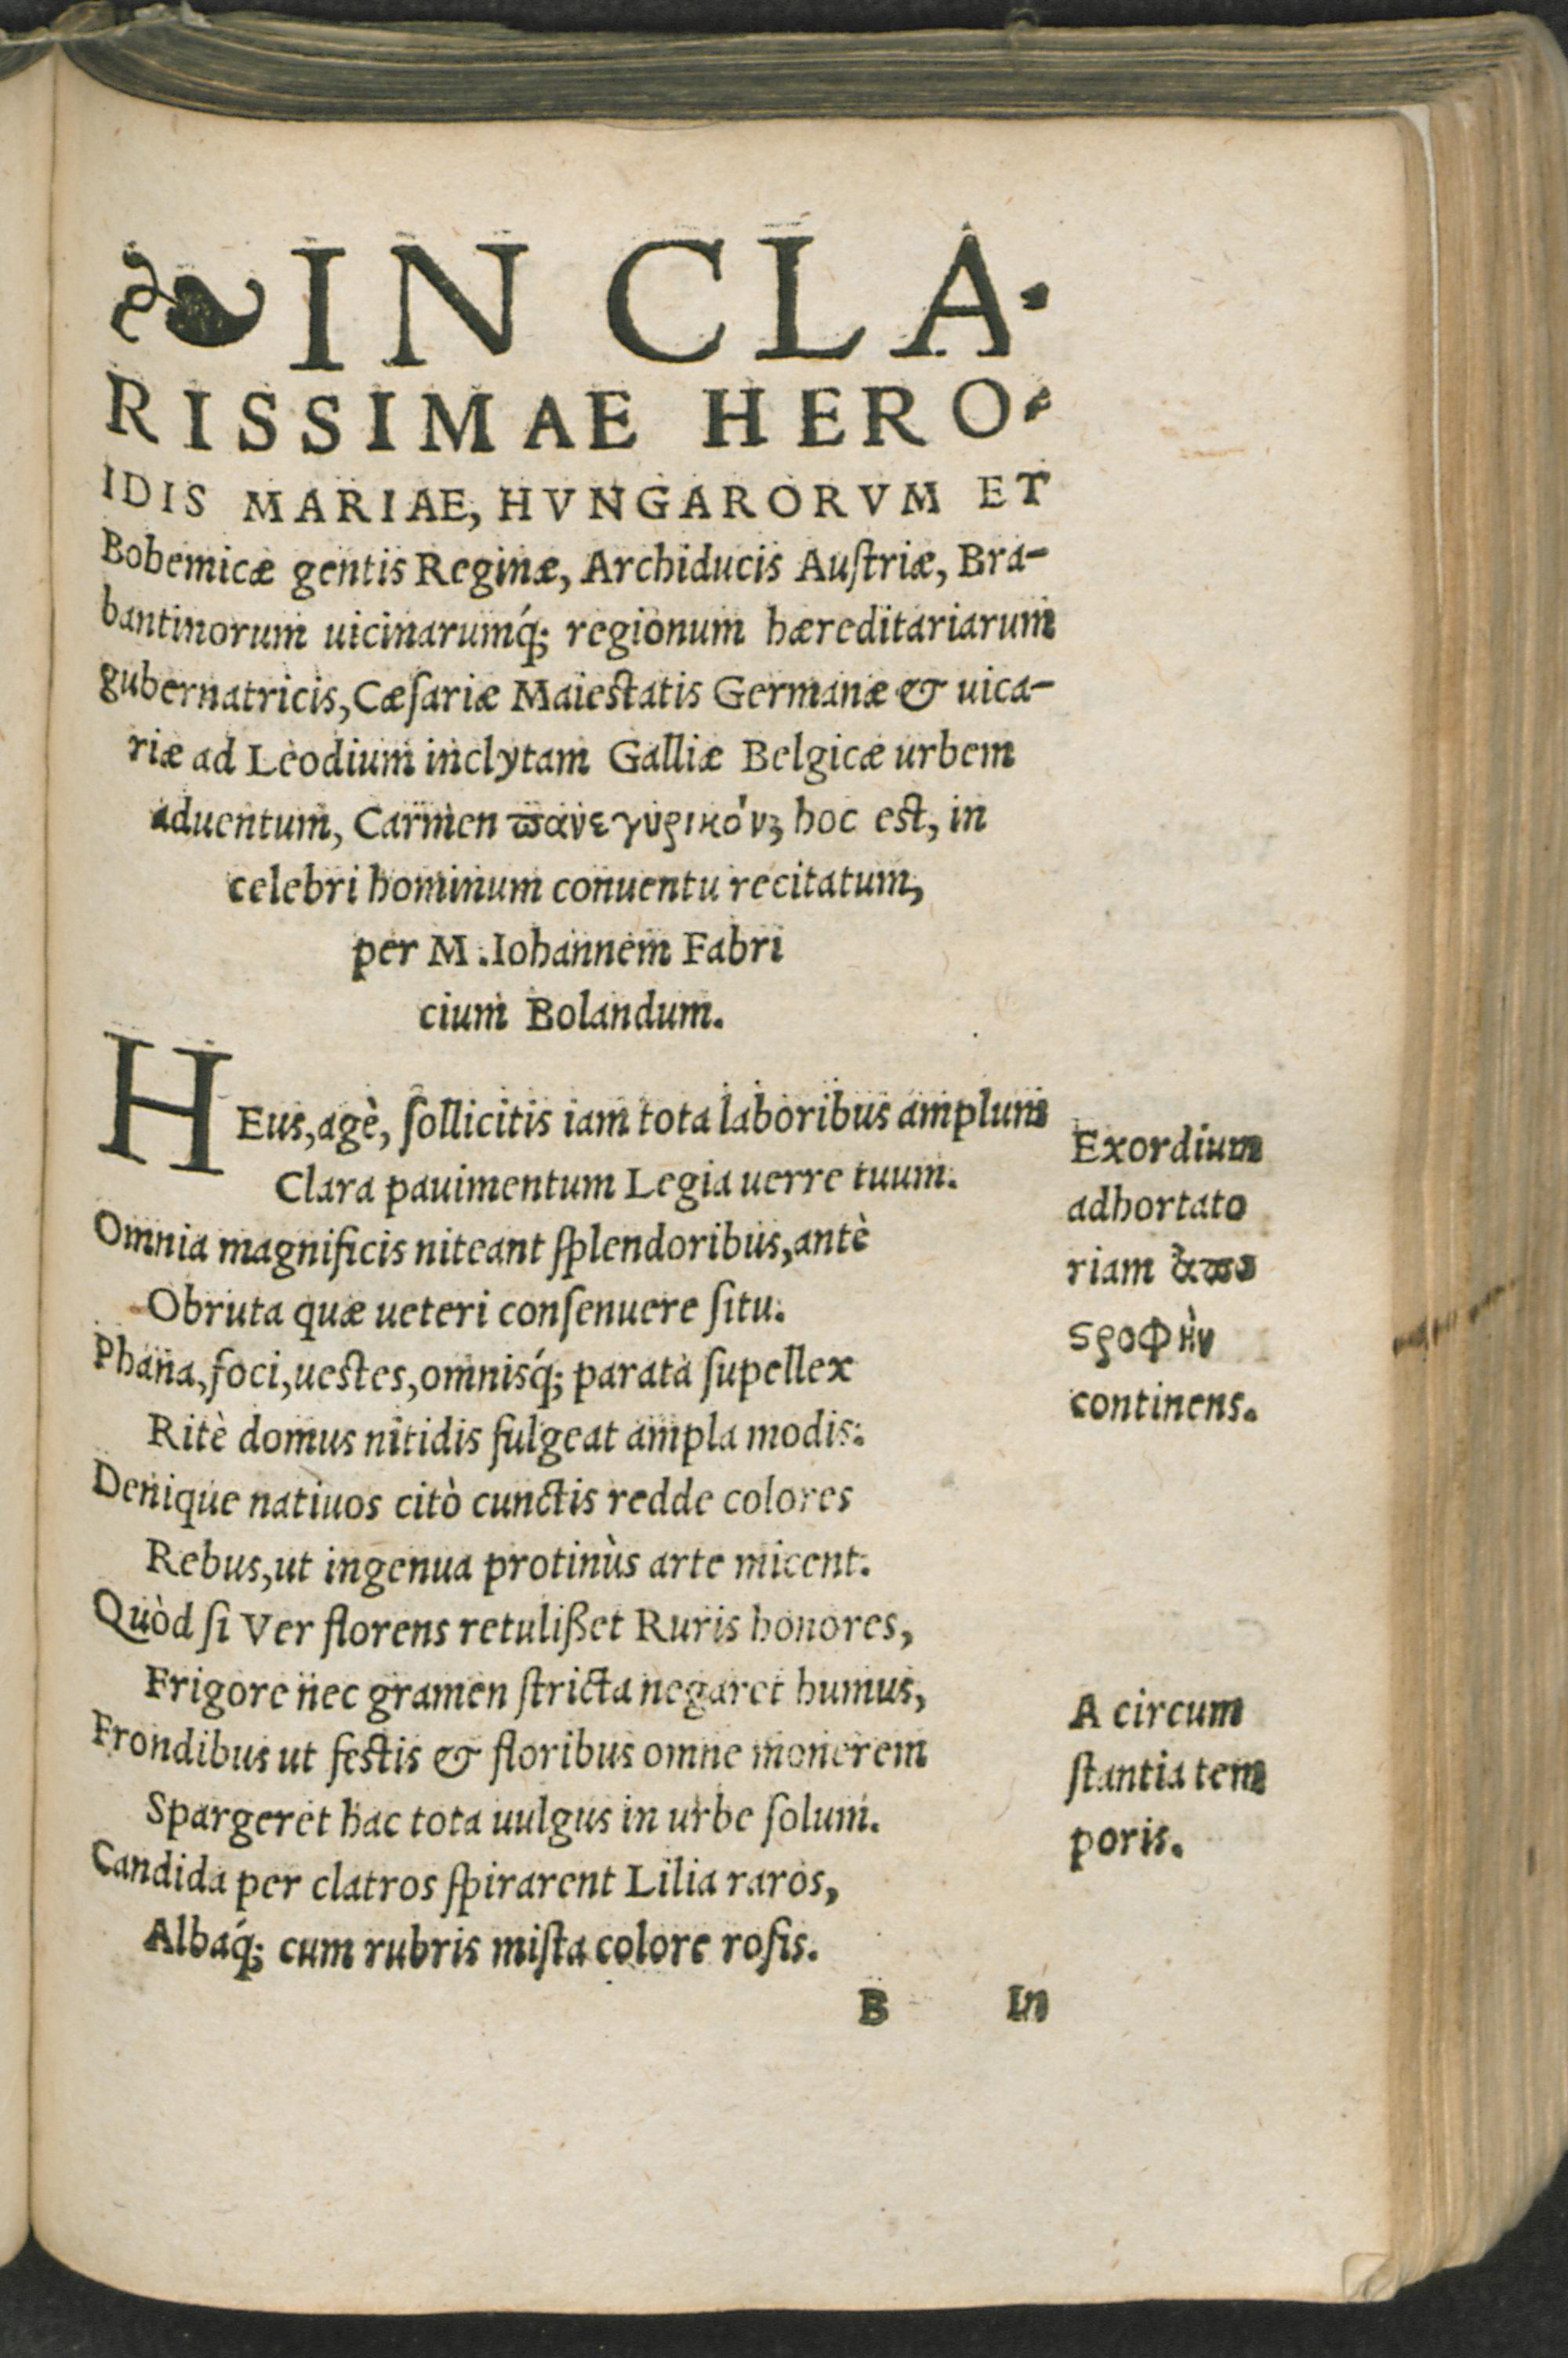 ❧IN CLA-
RISSIMAE HERO-
IDIS MARIAE, HVNGARORVM ET
Bohemicæ gentis Reginæ, Archiducis Auſtriæ, Bra-
bantinorum uicinarumq́; regionum hæreditariarum
gubernatricis, Cæſariæ Maieſtatis Germanæ & uica-
riæ ad Leodium inclytam Galliæ Belgicæ urbem
aduentum, Carmen ϖανεγυρικόν, hoc eſt, in
celebri hominum conuentu recitatum,
per M. Iohannem Fabri
cium Bolandum.
HEus, agè, ſollicitis iam tota laboribus amplum
Clara pauimentum Legia uerre tuum.
Omnia magnificis niteant ſplendoribus, antè
Obruta quæ ueteri conſenuere ſitu.
Phana, foci, ueſtes, omnisq́; parata ſupellex
Ritè domus nitidis fulgeat ampla modis:
Denique natiuos citò cunctis redde colores
Rebus, ut ingenua protinùs arte micent.
Quòd ſi Ver florens retulißet Ruris honores,
Frigore nec gramen ſtricta negaret humus,
Frondibus ut feſtis & floribus omne monerem
Spargeret hac tota uulgus in urbe ſolum.
Candida per clatros ſpirarent Lilia raros,
Albaq́; cum rubris miſta colore roſis.
Exordium
adhortato
riam ἀϖο
ϛροφὴν
continens.
A circum
ſtantia tem
poris.
B In